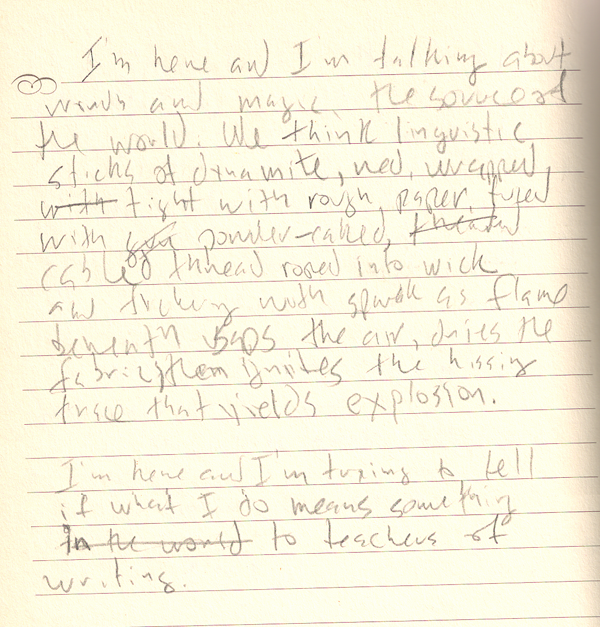 I'm here and I'm talking about
words and magic, the source of
the world. We think linguistic
sticks of dynamite, red, wrapped,
with tight with rough paper, fused
with powder-caked, thread
cabled thread roped into wick
and flickering with spark as flame
beneath the air, dries the
fabric, then ignites the hissing
trace that yields explosion.
I'm here and I'm trying to tell
if what I do means something
in the world to teachers of
writing.